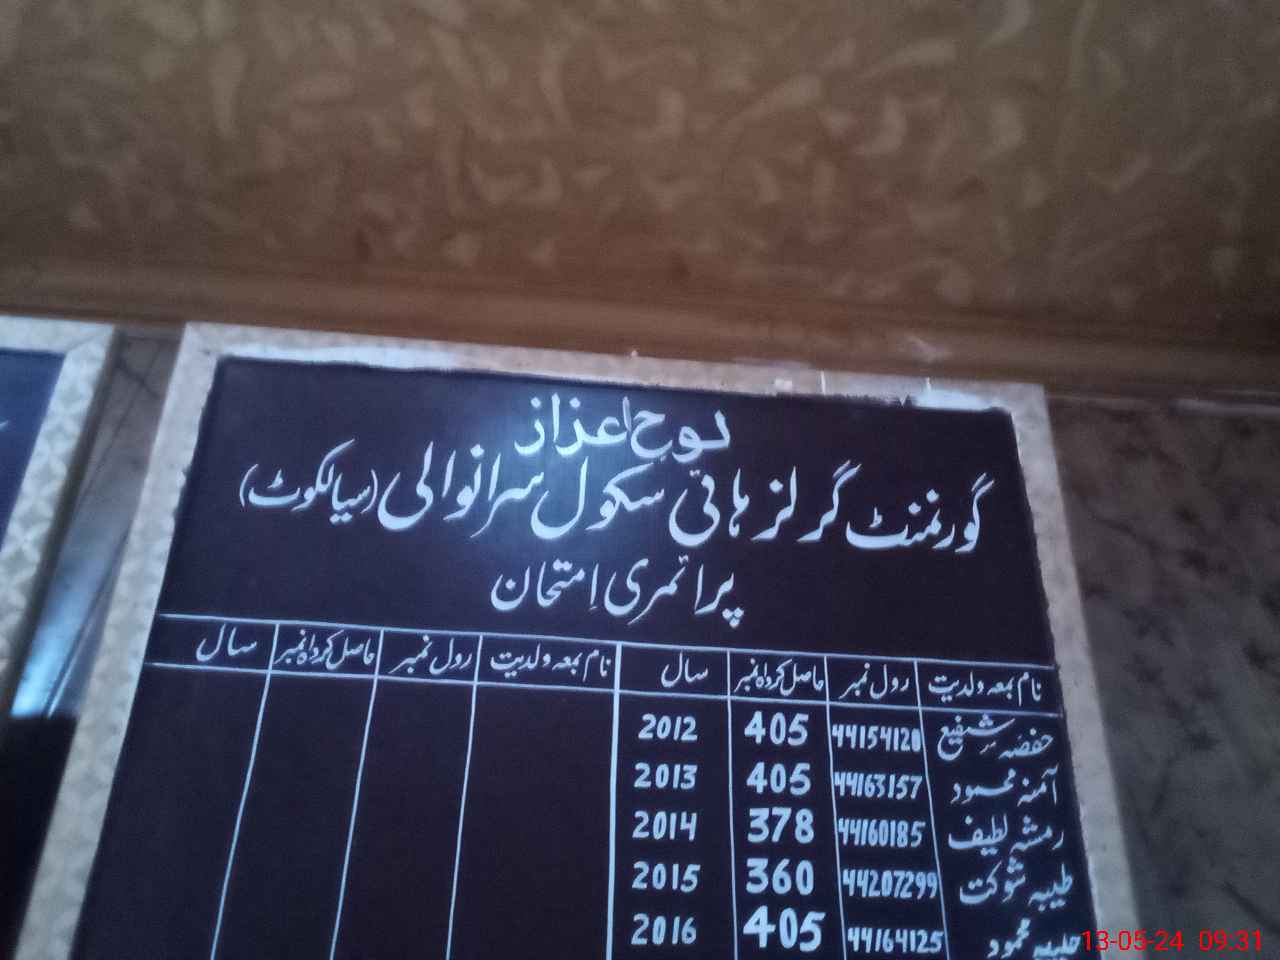 لوح اعزاز
گورنمنٹ گرلز ہائی سکول سرانوالی (سیالکوٹ)
پرائمری اِمتحان
نام بمعہ ولدیت رول نمبر حاصل کردہ نمبر سال نام بمعہ ولدیت رول نمبر حاصل کردہ نمبر سال
حفصہ شفیع 44154120 405 2012
آمنہ محمود 44163157 405 2013
رمشہ لطیف 44160185 378 2014
طیبہ شوکت 44207299 360 2015
محمود 44164125 405 2016
13-05-24 09:31